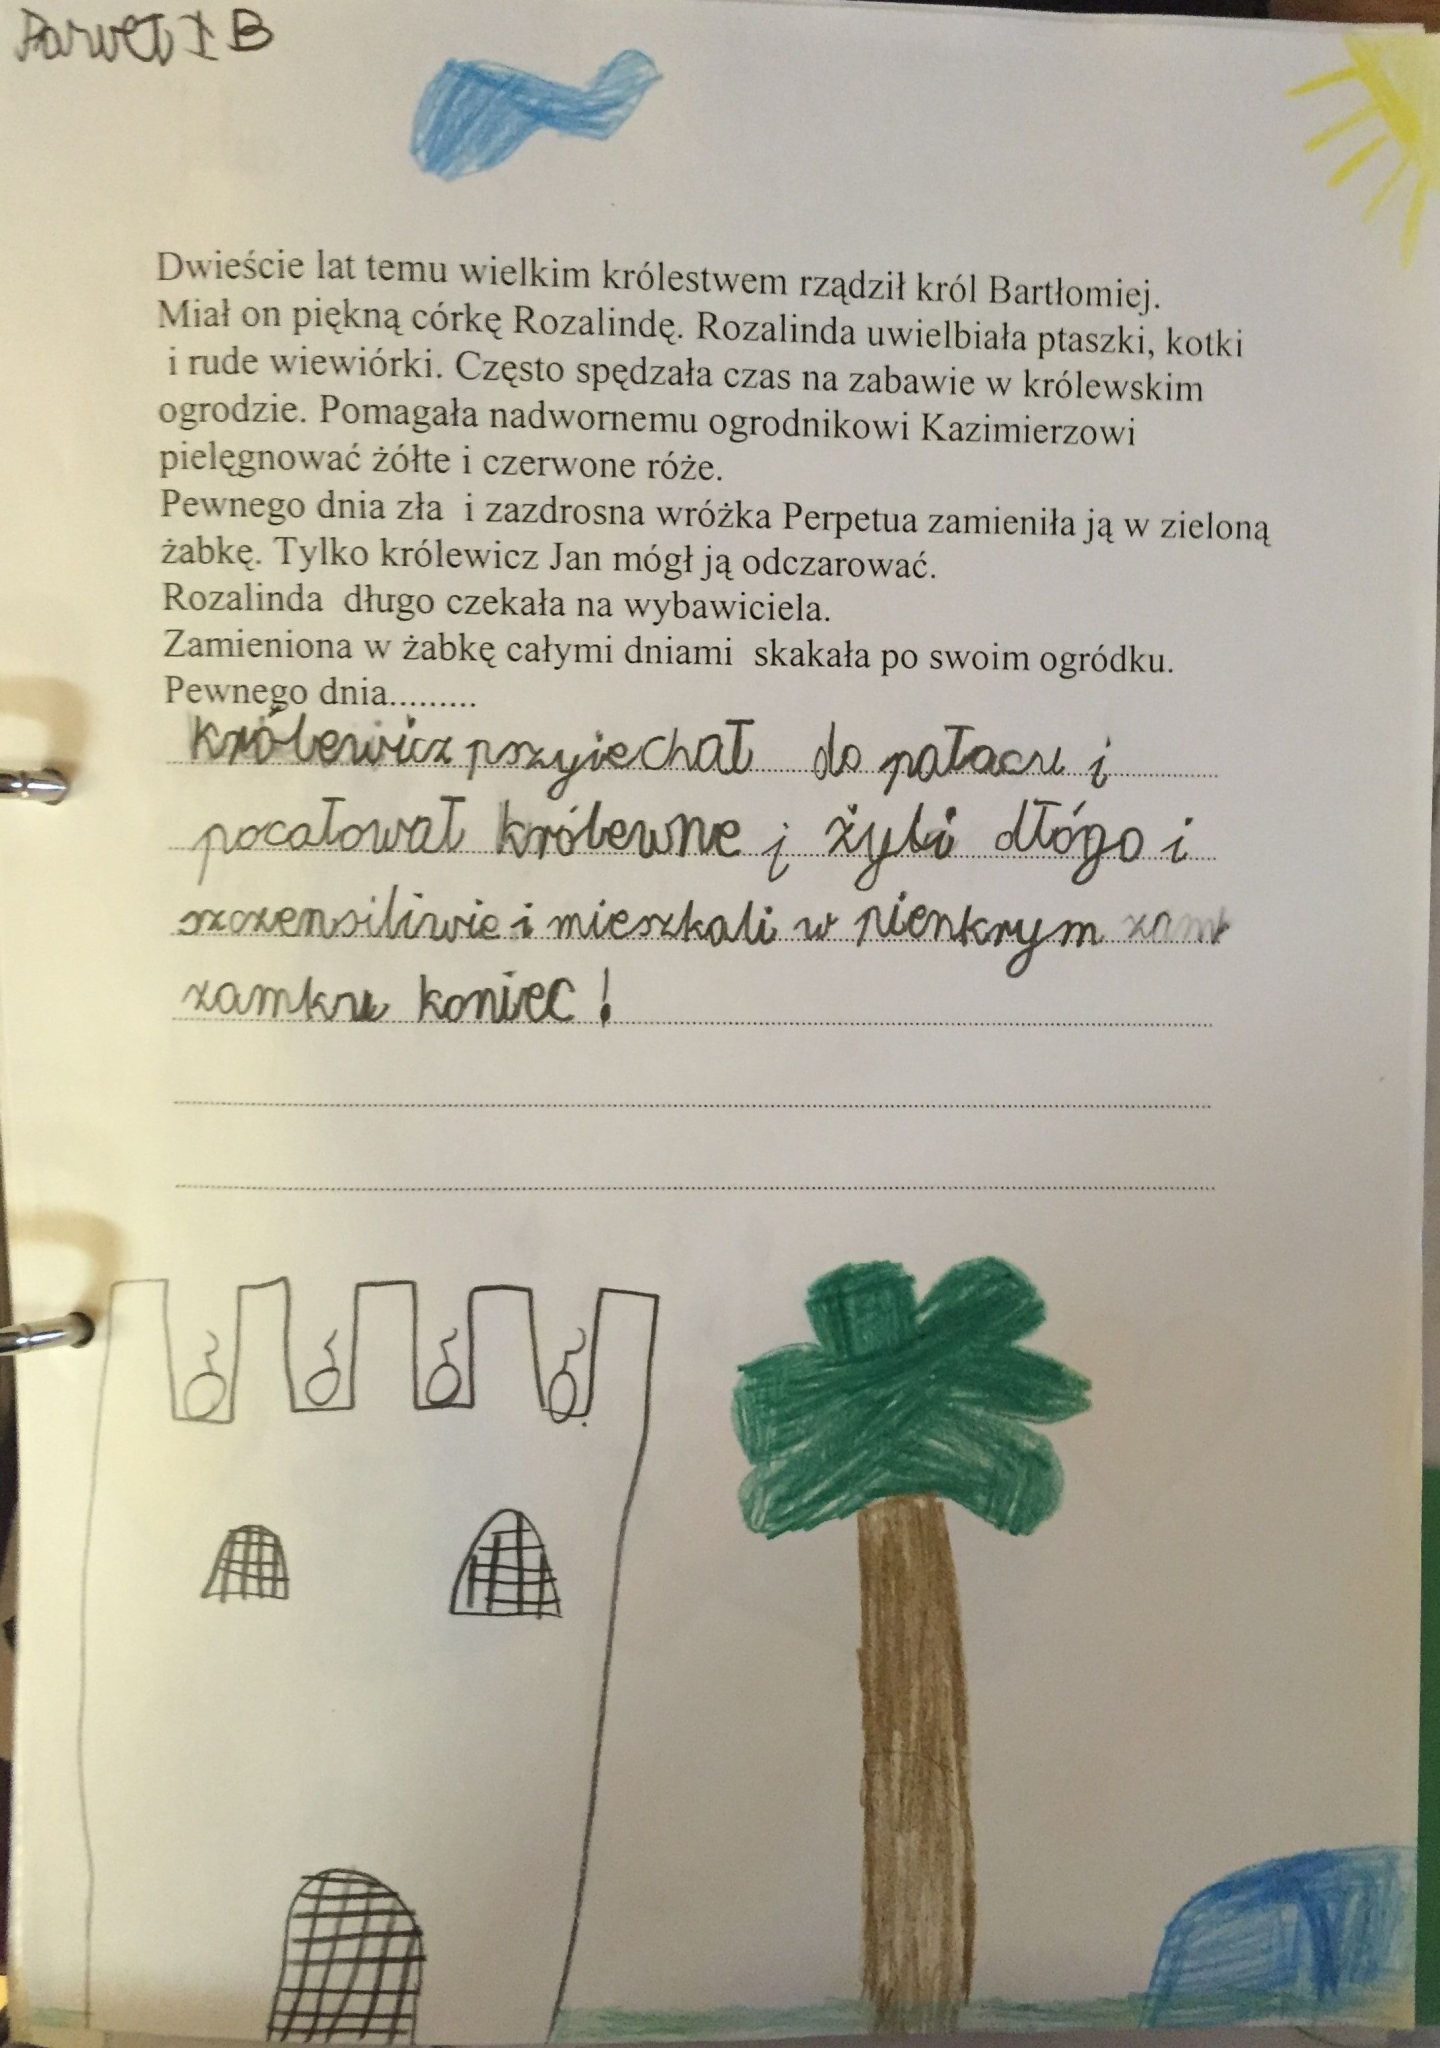 Paweł I B
Dwieście lat temu wielkim królestwem rządził król Bartłomiej.
Miał on piękną córkę Rozalindę. Rozalinda uwielbiała ptaszki, kotki
i rude wiewiórki. Często spędzała czas na zabawie w królewskim
ogrodzie. Pomagała nadwornemu ogrodnikowi Kazimierzowi
pielęgnować żółte i czerwone róże.
Pewnego dnia zła i zazdrosna wróżka Perpetua zamieniła ją w zieloną
żabkę. Tylko królewicz Jan mógł ją odczarować.
Rozalinda długo czekała na wybawiciela.
Zamieniona w żabkę całymi dniami skakała po swoim ogródku.
Pewnego dnia.........
królewicz pszyiechał do pałacu i
pocałował królewne i żyli dłógo i
szczensiliwie i mieszkali w pienkrym zamk
zamku koniec!